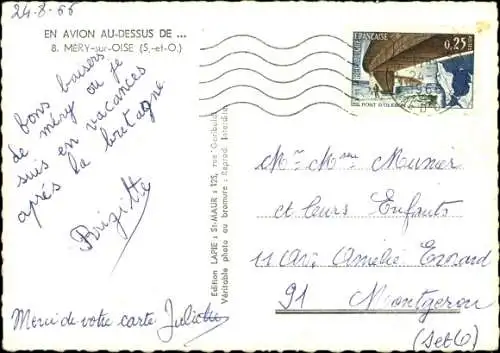 24-8-66
EN AVION AU-DESSUS DE ...
8. MÉRY-sur-OISE (S.-et-O.)
bons baisers
de méry ou je
suis en vacances
après la bretagne
Brigitte
Merci de votre carte Juliette
Edition LAPIE : St-MAUR : 125, rue Garibaldi
Véritable photo au bromure : Reprod. interdite
RÉPUBLIQUE FRANÇAISE
0,25
POSTES
PONT D'OLERON
Mr Mme Meunier
et leurs Enfants
11 Av. Amélie Evrard
91 Montgeron
(Set O)